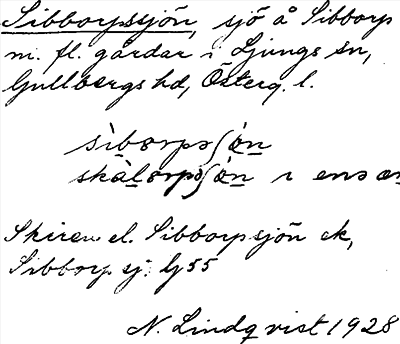 Sibborpssjön, sjö å Sibborp
m. fl. gårdar i Ljungs sn,
Gullbergs hd, Österg. l.
sìbơrpəʃön
skàlơrpəʃön ı enə
Skiren el. Sibborpsjön ek,
Sibborp sj. Lj 55
N. Lindqvist 1928